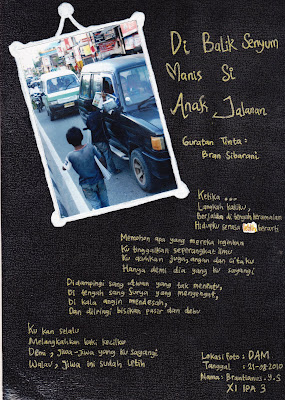 Di Balik Senyum
Manis Si
Anak Jalanan
Guratan Tinta :
Bran Sibarani
Ketika ...
Langkah kakiku,
Berjalan di tengah keramaian
Hidupku serasa berarti
Memohon apa yang mereka inginkan
Ku tinggalkan seperangkat ilmu
Ku abaikan juga, angan dan citaku
Hanya demi dia yang ku sayangi
Didampingi sang Awan yang tak menentu,
Di tengah sang Surya yang menyengat,
Di kala angin mendesah,
Dan diiringi bisikan pasir dan debu
Ku kan selalu
Melangkahkan kaki kecilku
Demi, Jiwa-Jiwa yang ku sayangi
Walau, Jiwa ini sudah letih
Lokasi Foto : DAM
Tanggal : 21-08-2010
Nama : Brantianus . g . S
XI IPA 3